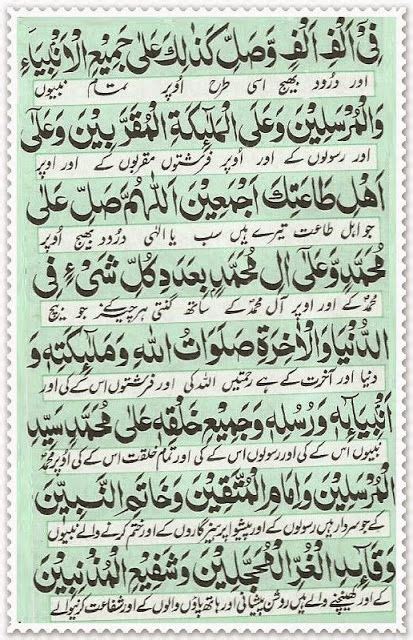 فِیْ اَلْفِ اَلْفٍ وَّصَلِّ كَذٰلِكَ عَلٰی جَمِیْعِ الْاَنْبِیَآءِ
اور درُود بھیج اسی طرح اُوپر تمام نبیوں
وَالْمُرْسَلِیْنَ وَعَلَی الْمَلٰٓئِكَةِ الْمُقَرَّبِیْنَ وَعَلٰٓی
اور رسولوں کے اور اُوپر فرشتوں مقربوں کے اور اوپر
اَهْلِ طَاعَتِكَ اَجْمَعِیْنَ اَللّٰهُمَّ صَلِّ عَلٰی
جو اہل طاعت تیرے ہیں سب یا الٰہی درُود بھیج اُوپر
مُحَمَّدٍ وَّعَلٰٓی اٰلِ مُحَمَّدٍ بِعَدَدِ كُلِّ شَیْءٍ فِی
محمدؐ کے اور اوپر آل محمدؐ کے ساتھ گنتی ہر چیز کے جو بیچ
الدُّنْیَا وَالْاٰخِرَةِ صَلَوَاتُ اللّٰهِ وَمَلٰٓئِكَتِهٖ وَ
دنیا اور آخرت کے ہے رحمتیں اللہ کی اور فرشتوں اس کے کی اور
اَنْبِیَآئِهٖ وَرُسُلِهٖ وَجَمِیْعِ خَلْقِهٖ عَلٰی مُحَمَّدٍ سَیِّدِ
نبیوں اس کے کی اور رسولوں اس کے کی اور تمام خلقت اس کے کی اُوپر محمدؐ
الْمُرْسَلِیْنَ وَاِمَامِ الْمُتَّقِیْنَ وَخَاتِمِ النَّبِیّٖنَ
کے جو سردار ہیں رسولوں کے اور پیشوا پرہیزگاروں کے اور ختم کرنے والے نبیوں
وَقَآئِدِ الْغُرِّ الْمُحَجَّلِیْنَ وَشَفِیْعِ الْمُذْنِبِیْنَ
کے اور کھینچنے والے ہیں روشن پیشانی اور ہاتھ پاؤں والوں کے اور شفاعت کرنیوالے